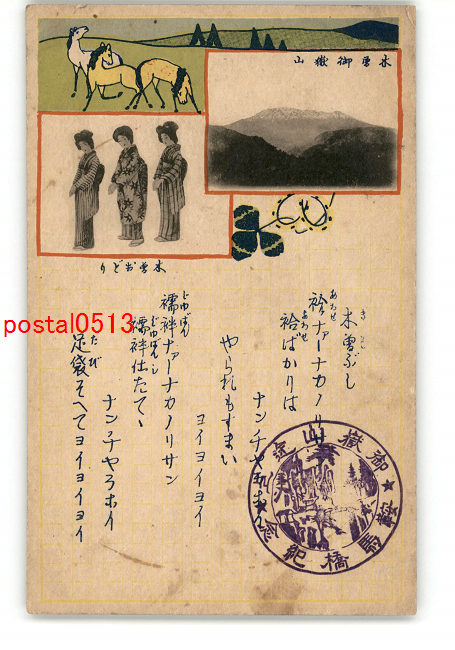 木曽御嶽山
木曽おどり
木曽ぶし
袷ナァーナカノリサン
袷ばかりは
ナンノチヤラホイ
やられもすまい
ヨイヨイヨイ
襦袢ナァーナカノリサン
襦袢仕たてゝ
ナンノチヤラホイ
足袋そへてヨイヨイヨイ
御嶽山
橋紀念
postal0513